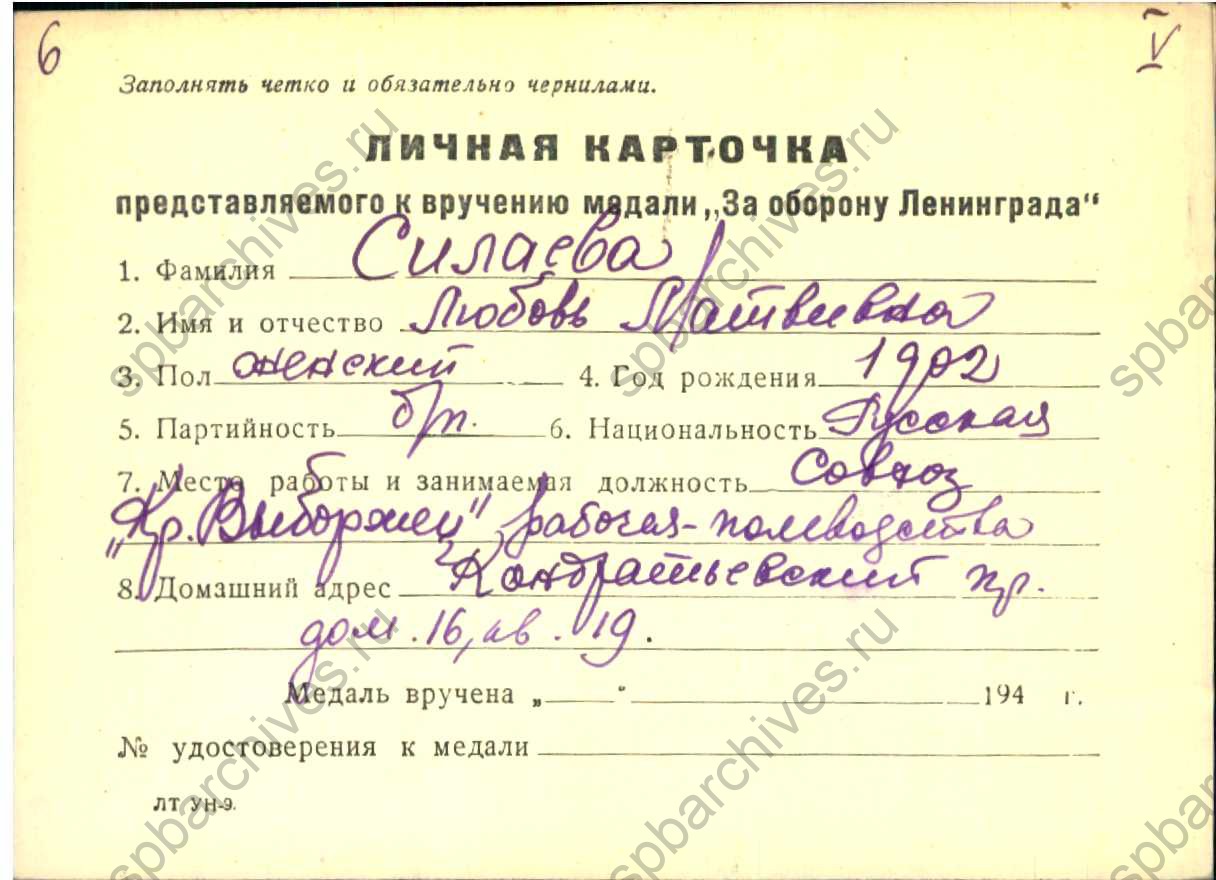 6
V
Заполнять четко и обязательно чернилами.
ЛИЧНАЯ КАРТОЧКА
представляемого к вручению медали „За оборону Ленинграда“
1. Фамилия Силаева
2. Имя и отчество Любовь Матвеевна
3. Пол женский 4. Год рождения 1902
5. Партийность б/п. 6. Национальность Русская
7. Место работы и занимаемая должность Совхоз
"Кр. Выборжец", рабочая-полеводства
8. Домашний адрес Кондратьевский пр.
дом. 16, кв. 19.
Медаль вручена „ “ 194 г.
№ удостоверения к медали
ЛТ УН-9.
spbarchives.ru
spbarchives.ru
spbarchives.ru
spbarchives.ru